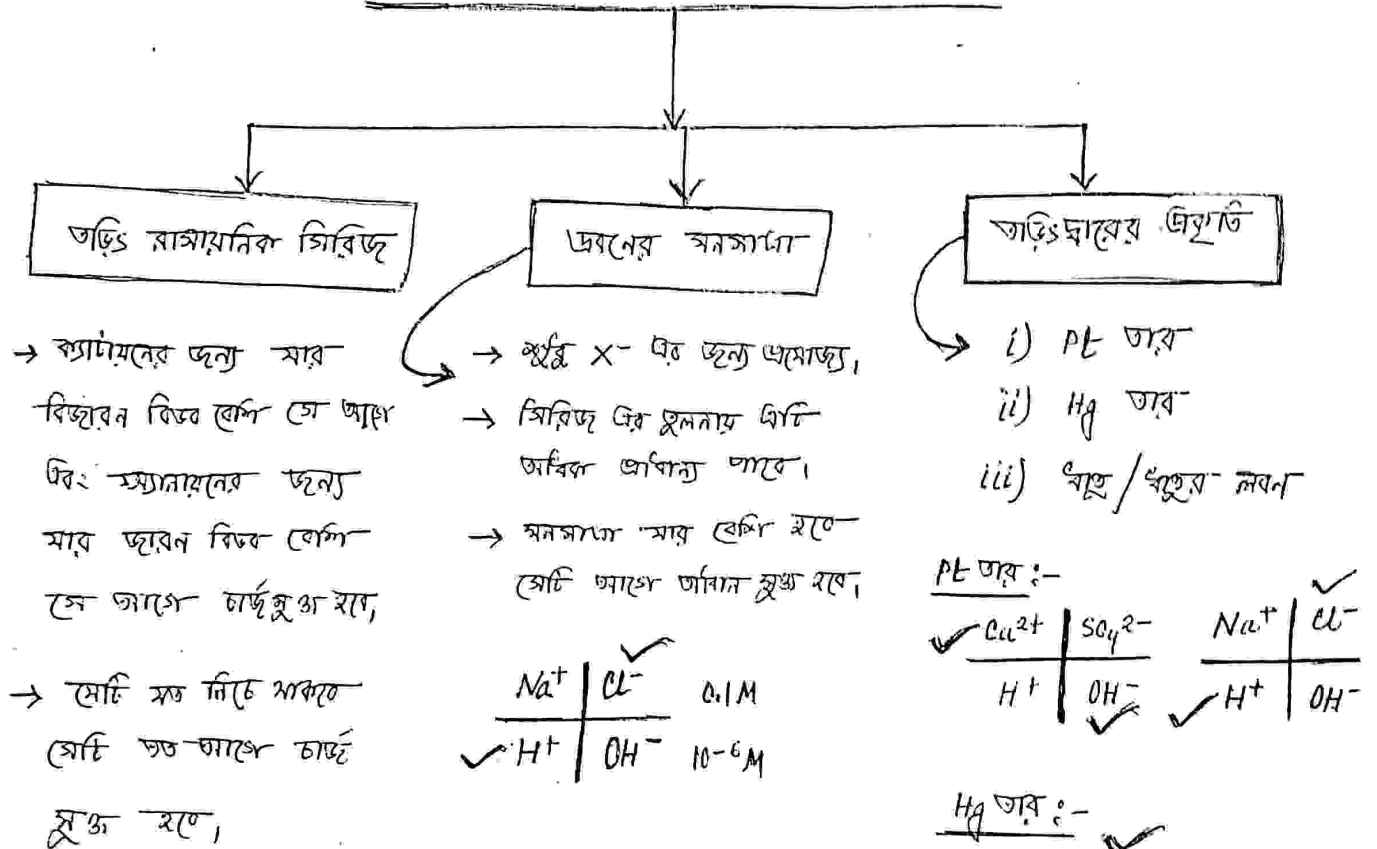 তড়িৎ রাসায়নিক সিরিজ
→ ক্যাটায়নের জন্য যার
বিজারন বিভব বেশি সে আগে
এবং অ্যানায়নের জন্য
যার জারন বিভব বেশি
সে আগে চার্জমুক্ত হবে,
→ যেটি যত নিচে থাকবে
সেটি তত আগে চার্জ
মুক্ত হবে,
দ্রবনের ঘনমাত্রা
→ শুধু X⁻ এর জন্য প্রযোজ্য,
→ সিরিজ এর তুলনায় এটি
অধিক প্রাধান্য পাবে।
→ ঘনমাত্রা যার বেশি হবে
সেটি আগে আধান মুক্ত হবে,
Na⁺ | Cl⁻ ✓ 0.1M
✓ H⁺ | OH⁻ 10⁻⁶M
তড়িৎদ্বারের প্রকৃতি
i) Pt তার
ii) Hg তার
iii) ধাতু/ধাতুর লবন
Pt তার :-
✓ Cu²⁺ | SO₄²⁻
H⁺ | OH⁻ ✓
Na⁺ | Cl⁻ ✓
✓ H⁺ | OH⁻
Hg তার :- ✓